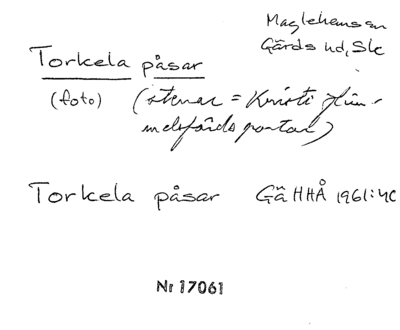 Maglehems sn
Gärds hd, Sk
Torkela påsar
(foto) (stenar = Kristi him-
melsfärds portar)
Torkela påsar GäHHÅ 1961:40
Nr 17061